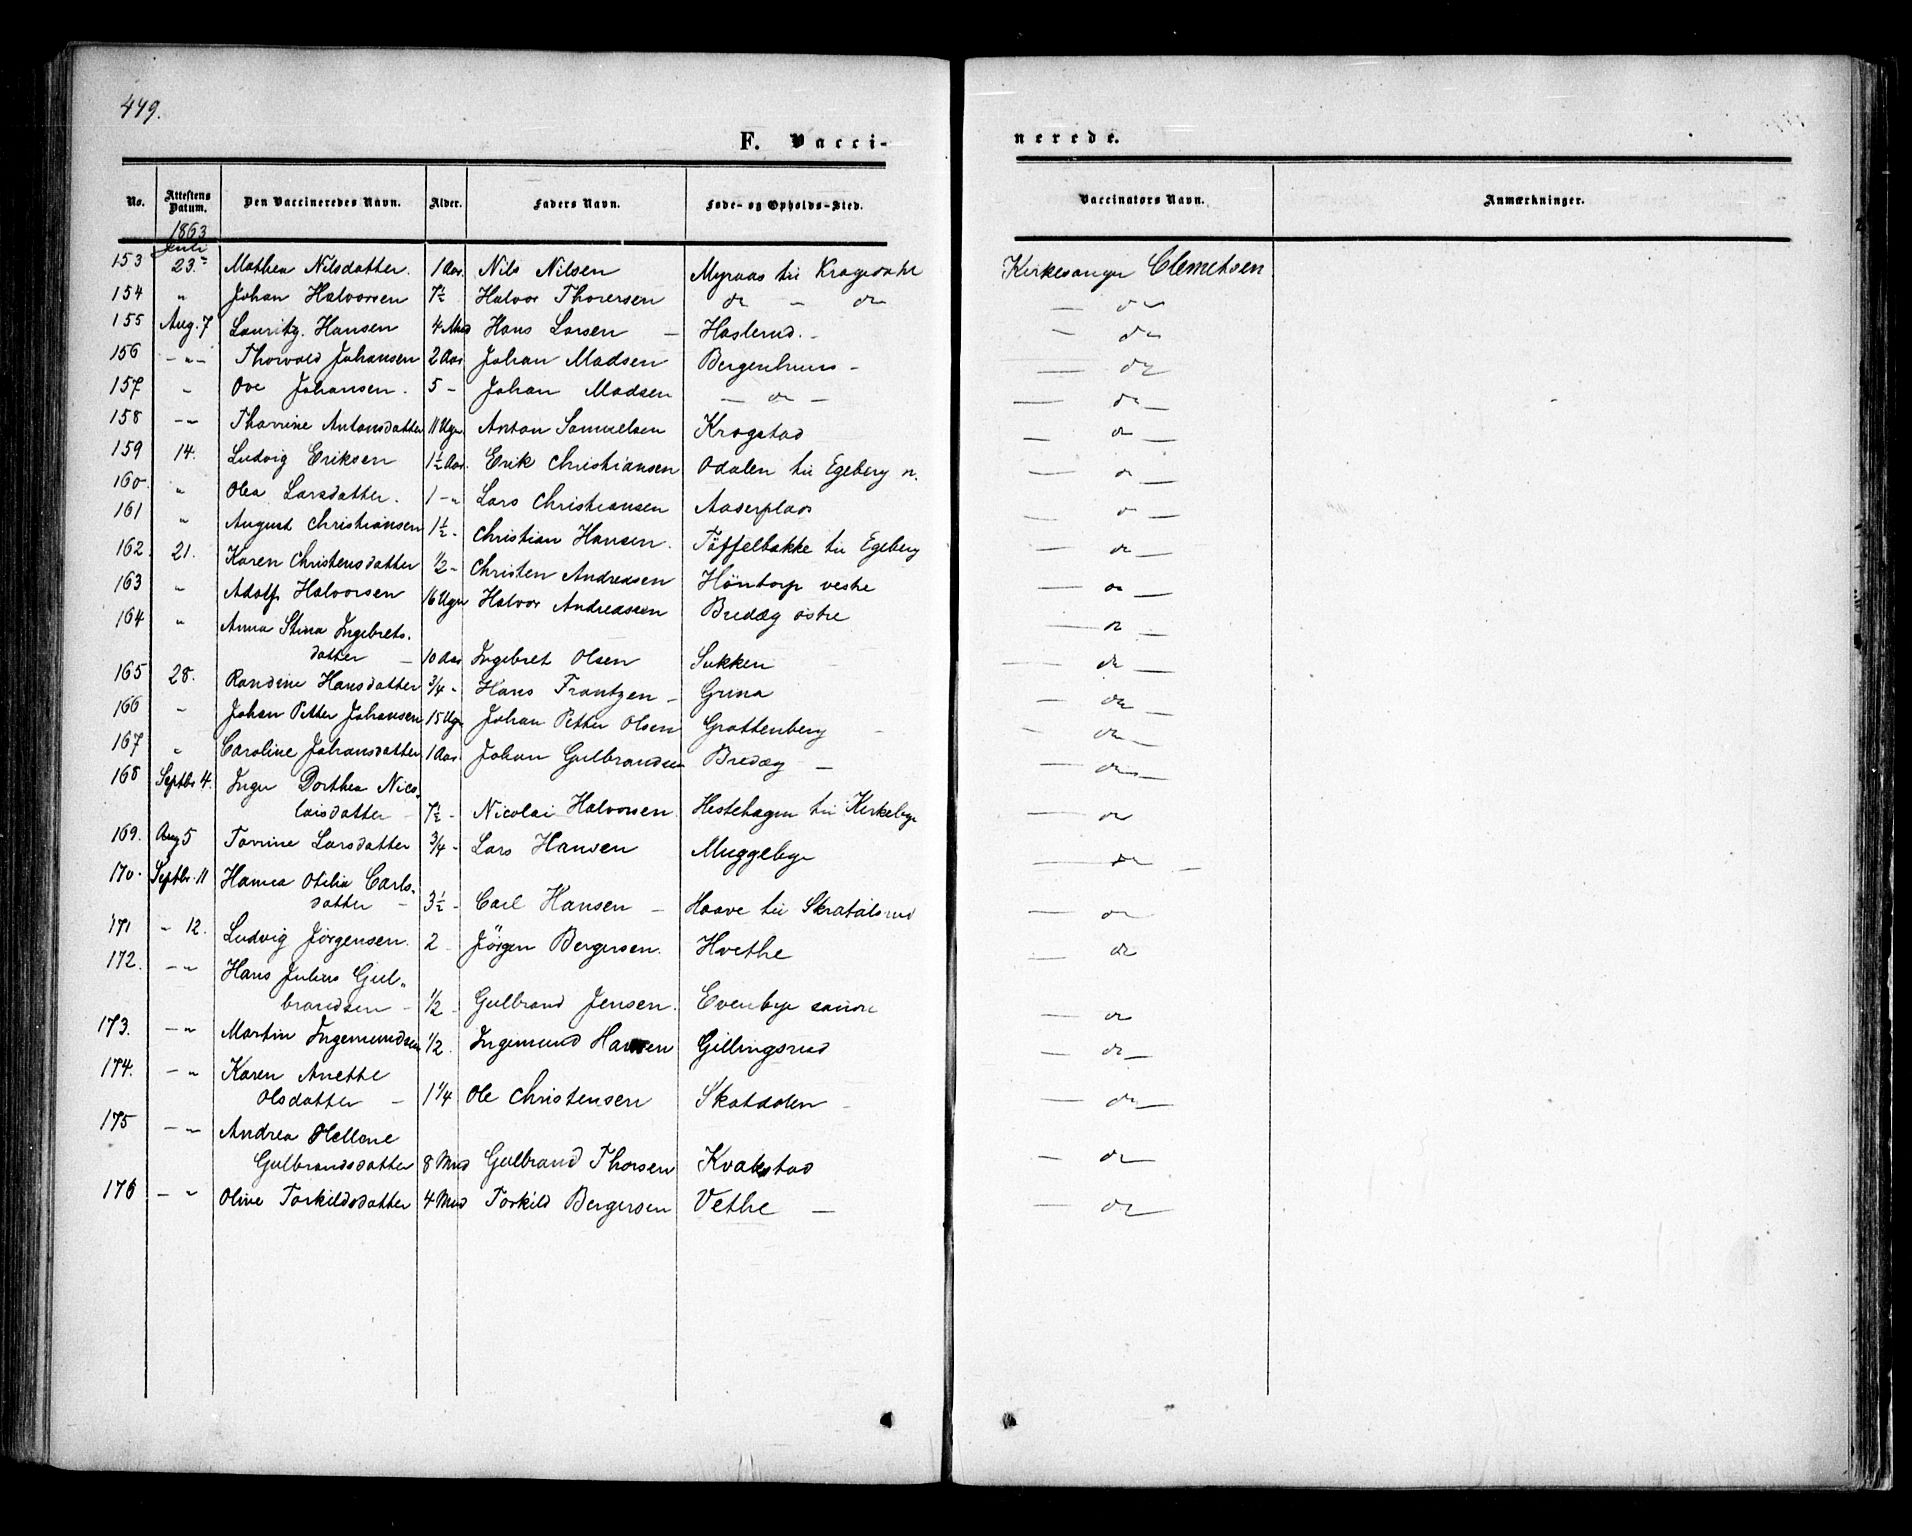 449.
F. Vacci-
nerede.
No. Attestens Datum. Den Vaccineredes Navn. Alder. Faders Navn. Føde- og Opholds-Sted. Vaccinators Navn. Anmærkninger.
1863
Juli
153 23. Mathea Nilsdatter. 1 Aar. Nils Nilsen Myraas til Krogsdahl Kirkesanger Clemetsen
154 " Johan Halvorsen 7½ Halvor Thorersen do - do — do
155 Aug. 7 Lauritz Hansen 4 Mnd Hans Larsen — Haslerud. - — do
156 -"- Thorvald Johansen 2 Aar Johan Madsen Bergenhuus - — do
157 " Ove Johansen. 5 - Johan Madsen — do — — do —
158 -"- Thorine Antonsdatter 11 Ugr Anton Samuelsen Krogstad — do —
159 14. Ludvig Eriksen 1½ Aar. Erik Christiansen Odalen til Egeberg n. — do —
160. " Olea Larsdatter. 1 -" Lars Christiansen Aaserplads — do —
161 " August Christiansen 1½ - Christian Hansen. Tøffelbakke til Egeberg — do —
162. 21. Karen Christensdatter ½ - Christen Andreasen Høntorp vestre — do —
163 " Adolf Halvorsen 16 Ugr Halvor Andreasen Bredæg østre — do —
164 " Anna Stina Ingebrets-
datter — 10 Aar Ingebret Olsen Sukken — do —
165 28. Randine Hansdatter ¾ - Hans Frantzen - Grina — do —
166 " Johan Petter Johansen 15 Ugr Johan Petter Olsen Grottenberg - — do —
167 " Caroline Johansdatter 1 Aar. Johan Gulbrandsen Bredæg — — do —
168 Septbr 4. Inger Dorthea Nico-
laisdatter - 7½ - Nicolai Halvorsen Hestehagen til Kirkebye — do
169. Aug 5 Torine Larsdatter ¾ - Lars Hansen Muggebye — do —
170. Septbr. 11 Otilia Carls-
datter — 3½ - Carl Hansen — Haave til — do
171 - 12. Ludvig Jørgensen. 2 - Jørgen Bergersen. Hvethe — do
172. -" Hans Julius Gul-
brandsen - ½ - Gulbrand Jensen. Evenbye søndre — do
173. -" Martin Ingemundsen ½. Ingemund Hansen Gillingsrud — do —
174. -" Karen Anette
Olsdatter — 1¼ Ole Christensen Skotdalen - — do —
175 -" Andrea Hellene
Gulbrandsdatter 8 Mnd Gulbrand Thorsen Kvakstad — do
176 -" Olive Torkildsdatter 4 Mnd Torkild Bergersen Vethe — — do